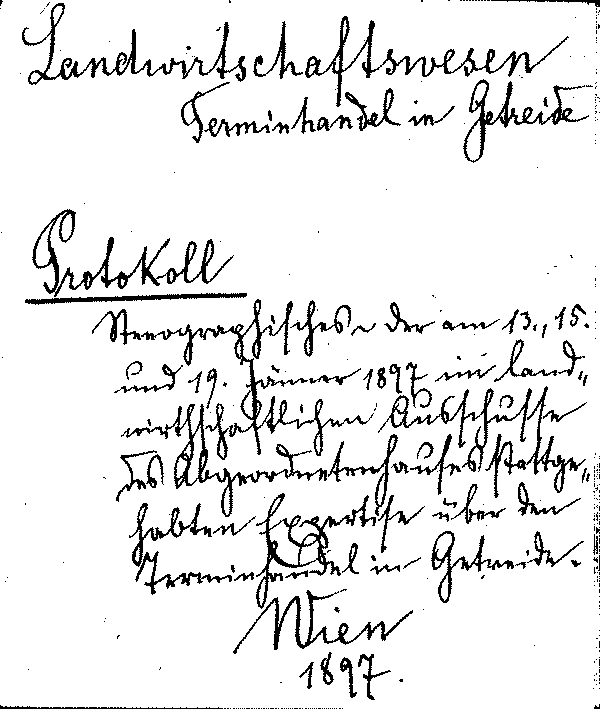 Landwirtschaftswesen
Terminhandel in Getreide
Protokoll
Stenographisches ~ der am 13., 15.
und 19. Jänner 1897 im land„
wirthschaftlichen Ausschusse
des Abgeordnetenhauses stattge„
habten Expertise über den
Terminhandel in Getreide.
Wien
1897.